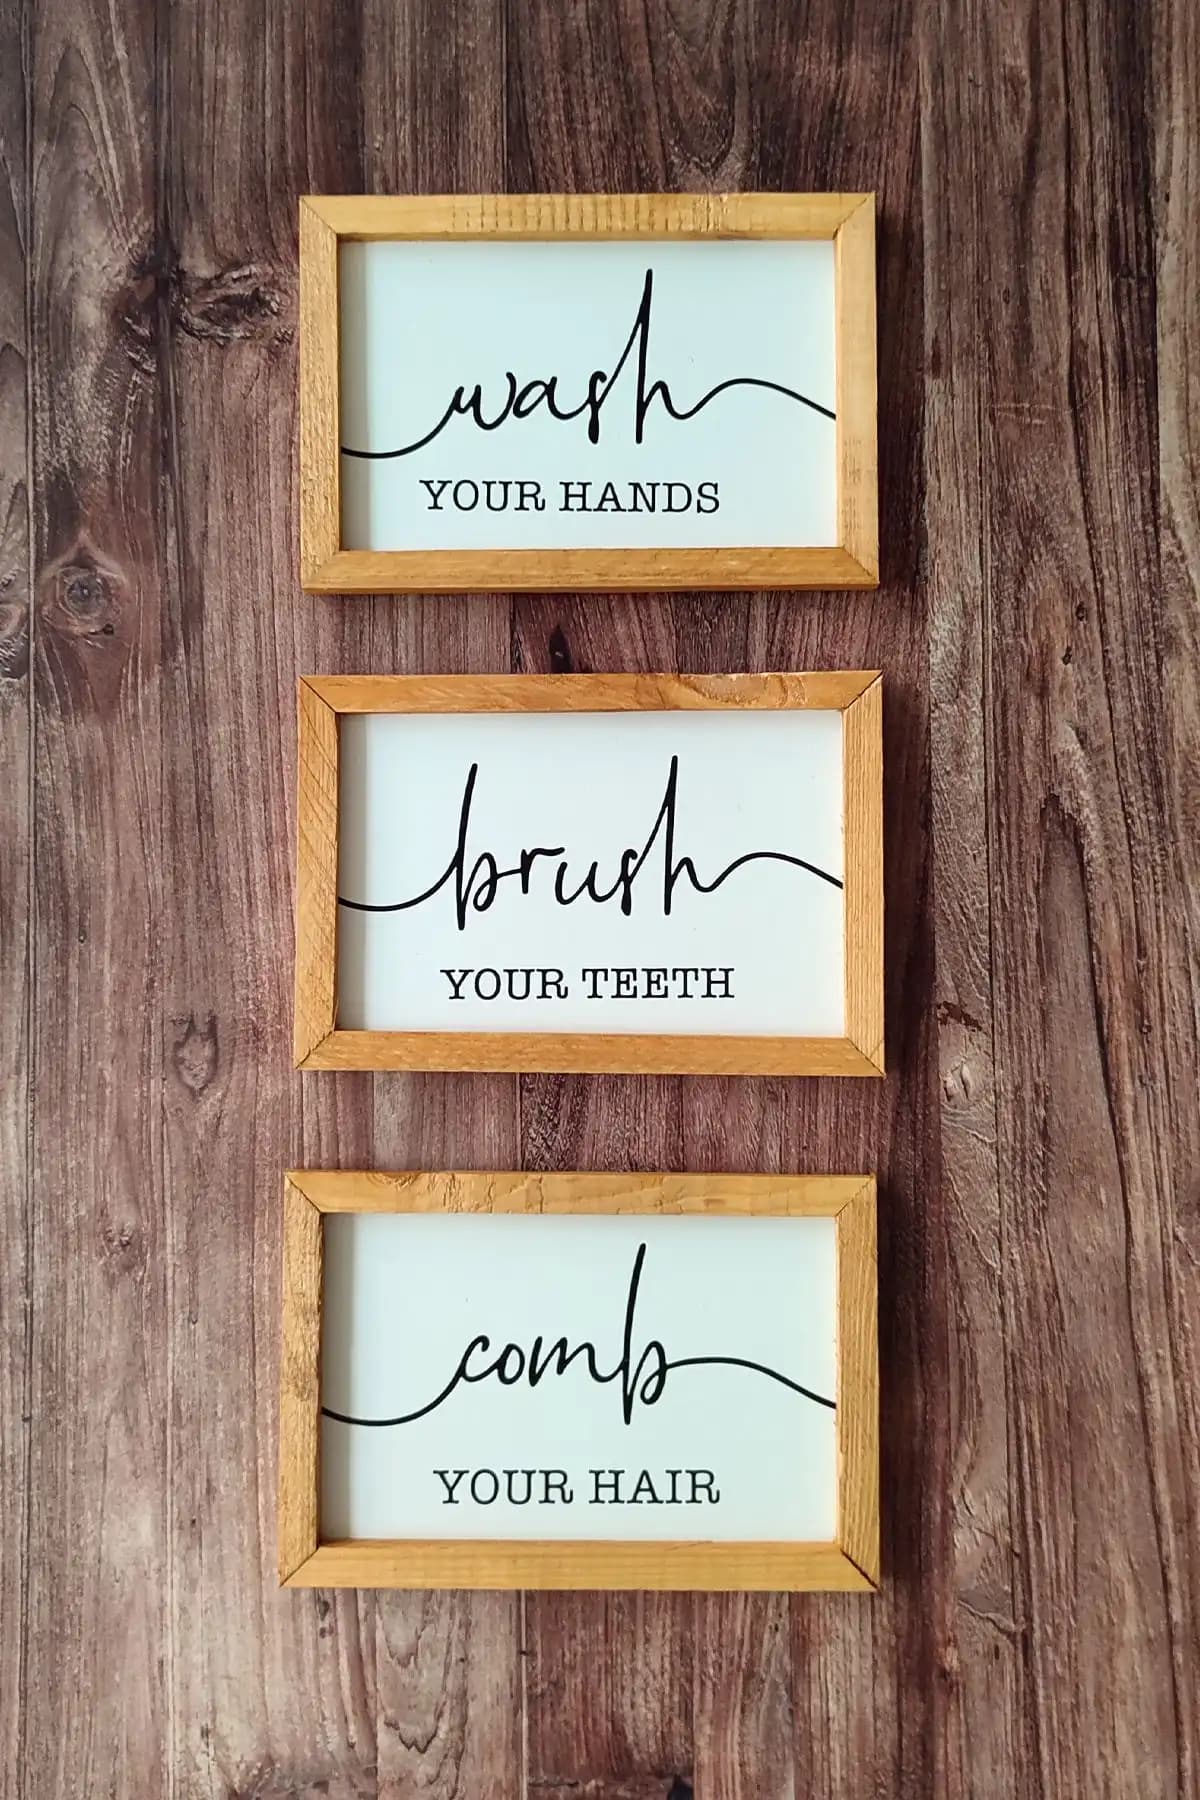 wash
YOUR HANDS
brush
YOUR TEETH
comb
YOUR HAIR